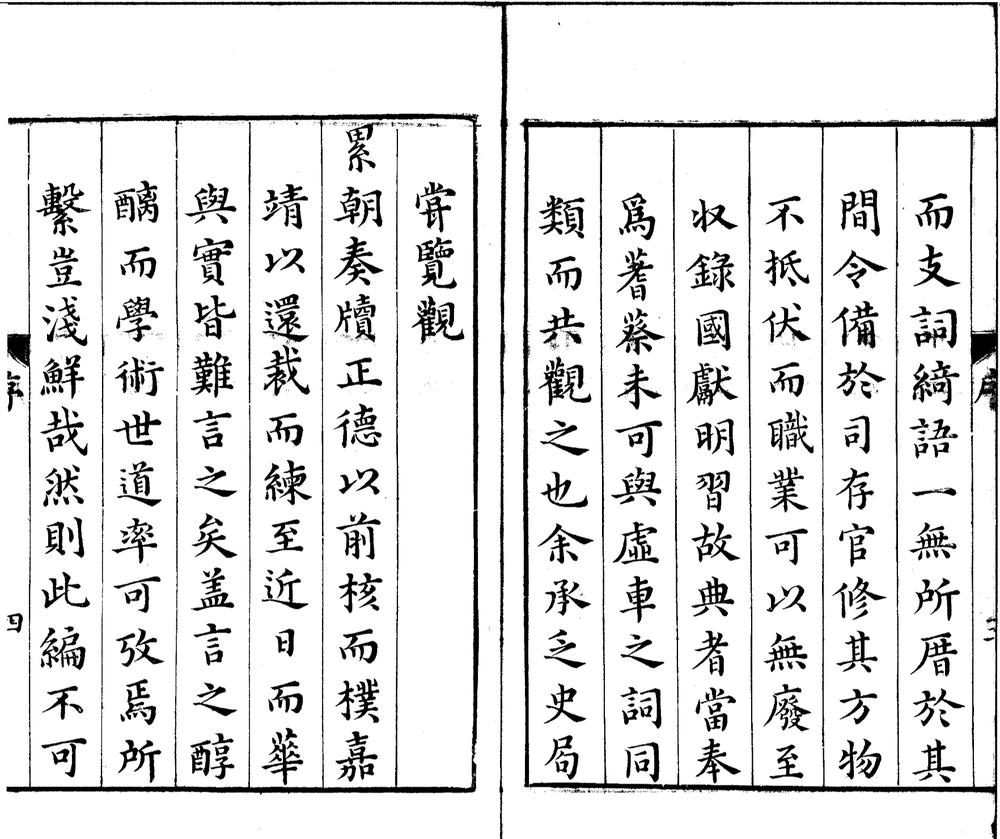 而支詞綺語一無所厝於其
間令備於司存官修其方物
不抵伏而職業可以無廢至
収錄國獻明習故典者當奉
爲蓍蔡未可與虛車之詞同
類而共觀之也余承乏史局
嘗覽觀
累朝奏牘正德以前核而樸嘉
靖以還裁而練至近日而華
與實皆難言之矣蓋言之醇
醨而學術世道率可攷焉所
繫豈淺鮮哉然則此編不可
序
四